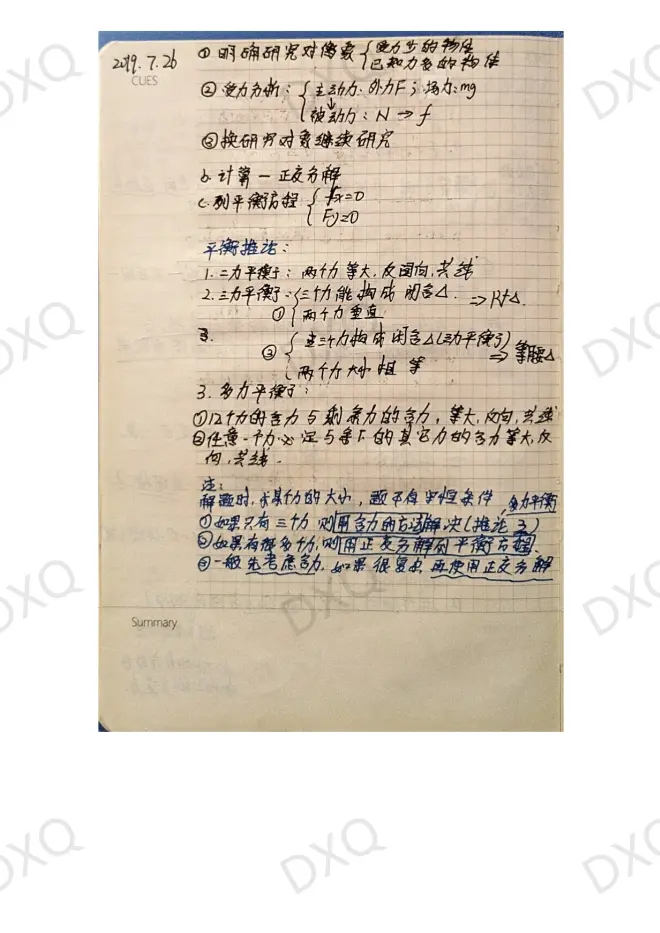 2019.7.26
CUES
① 明确研究对像象 { 受力少的物体
已知力多的物体
② 受力分析: { 主动力: 外力F; 场力: mg
↓
被动力: N → f
③ 换研究对象继续研究
b. 计算 — 正交分解
c. 列平衡方程 { Fx=0
Fy=0
平衡推论:
1. 二力平衡: 两个力等大, 反向, 共线
2. 三力平衡: ① { 三个力能构成闭合△. ⇒ Rt△.
两个力垂直
3.
② { 三个力构成闭合△(三力平衡) ⇒ 等腰△
两个力大小相等
3. 多力平衡:
①几个力的合力与剩余力的合力, 等大, 反向, 共线
②任意一个力必定与余下的其它力的合力等大, 反
向, 共线.
注:
解题时, 求某个力的大小, 题不有平恒条件, 多力平衡
①如果只有三个力, 则用合力的方法解决(推论3)
②如果有很多个力, 则用正交分解列平衡方程.
③一般先考虑合力, 如果很复杂, 再使用正交分解
Summary
DXQ
DXQ
DXQ
DXQ
DXQ
DXQ
DXQ
DXQ
DXQ
DXQ
DXQ